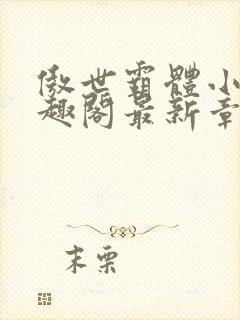 傲世霸體小
趣閣最新章
末栗